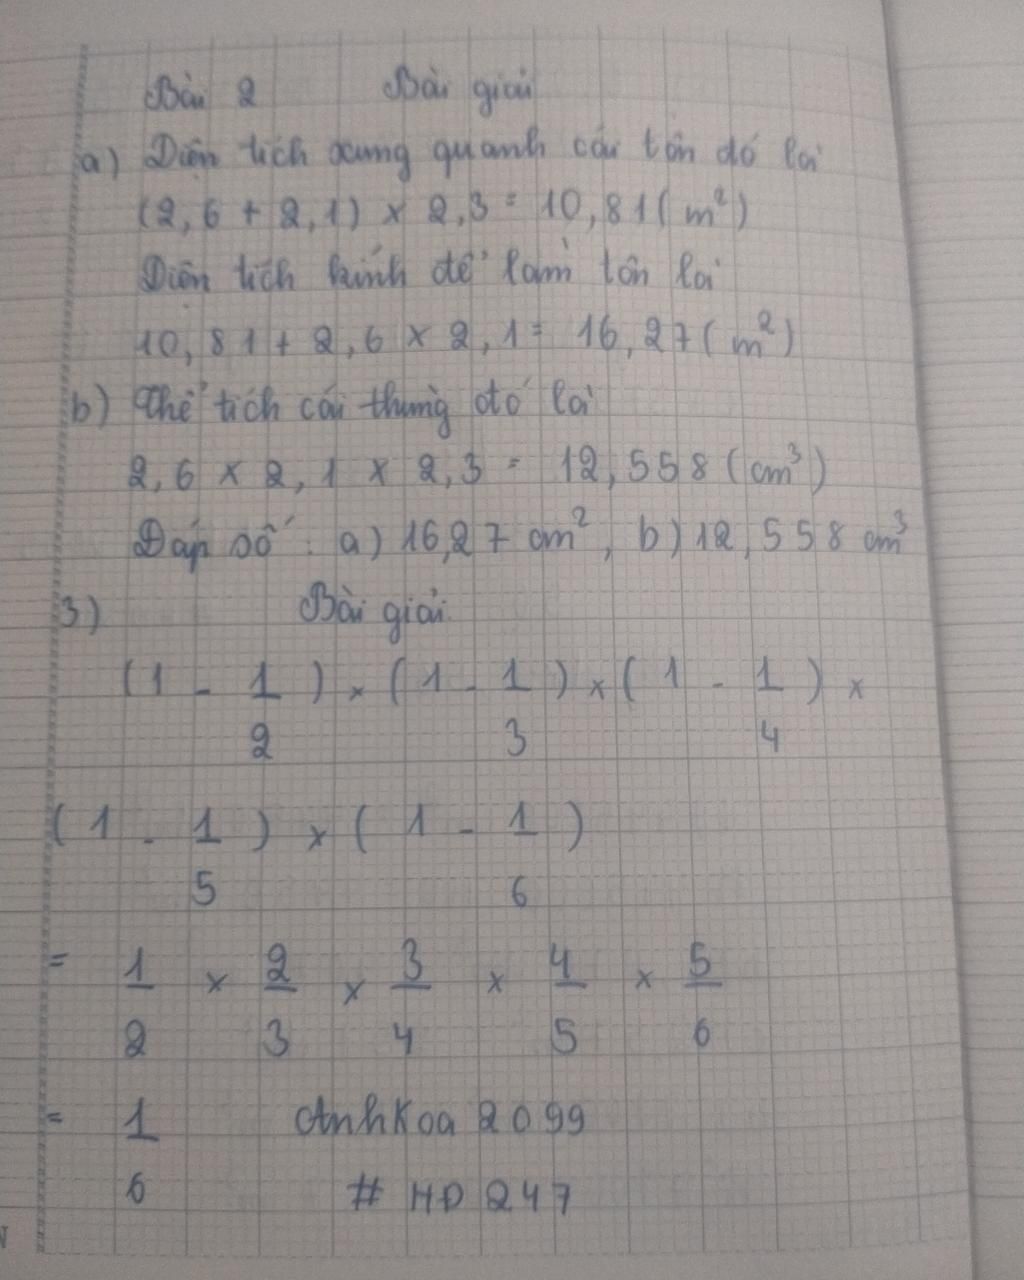 Bài 2 Bài giải
a) Diện tích xung quanh cái tôn đó là
(2,6 + 2,1) x 2,3 = 10,81 (m²)
Diện tích kính để làm tôn là
10,81 + 2,6 x 2,1 = 16,27 (m²)
b) Thể tích cái thùng đó là
2,6 x 2,1 x 2,3 = 12,558 (cm³)
Đáp số: a) 16,27 cm², b) 12,558 cm³
3) Bài giải
(1 - 1/2) x (1 - 1/3) x (1 - 1/4) x
(1 - 1/5) x (1 - 1/6)
= 1/2 x 2/3 x 3/4 x 4/5 x 5/6
= 1/6 AnhKoa 2099
# HD 247